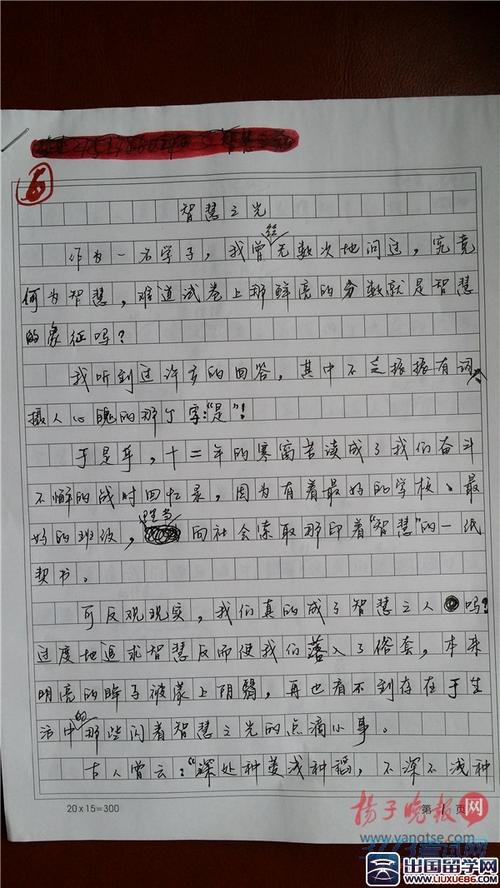 6
智慧之光
作为一名学子，我曾经无数次地问过，究竟
何为智慧，难道试卷上那鲜亮的分数就是智慧
的象征吗？
我听到过许多的回答，其中不乏振振有词、
摄人心魄的那个字："是"！
于是乎，十二年的寒窗苦读成了我们奋斗
不懈的战时回忆录，因为有着最好的学校、最
好的班级，向社会索取那印着"智慧"的一纸
契书。
可反观现实，我们真的成了智慧之人吗？
过度地追求智慧反而使我们落入了俗套，本来
明亮的眸子被蒙上阴翳，再也看不到存在于生
活中的那些闪着智慧之光的点滴小事。
古人曾云："深处种菱浅种稻，不深不浅种
20×15=300
第 1 页
扬子晚报网
www.yangtse.com
出国留学网
www.liuxue86.com